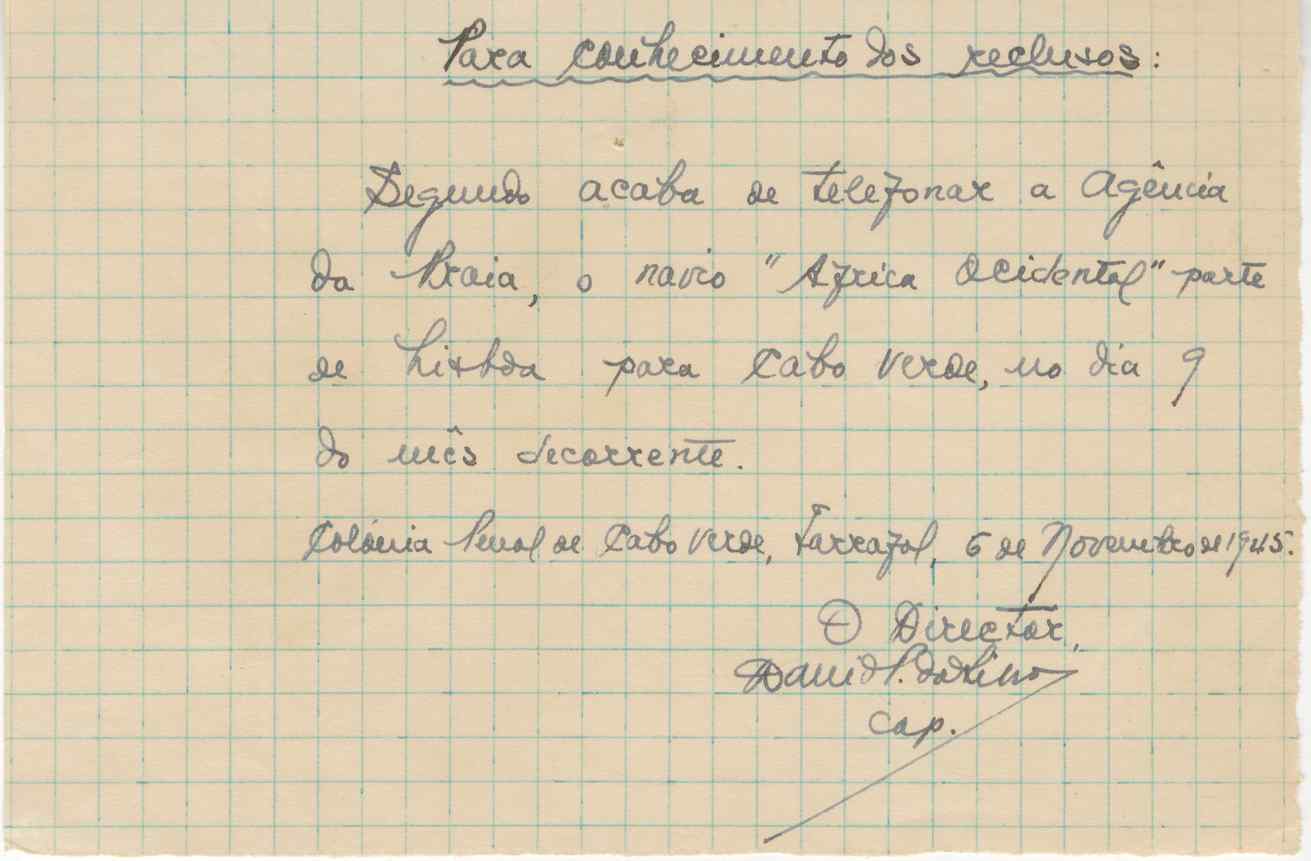 Para conhecimento dos reclusos:
Segundo acaba de telefonar a Agência
da Praia, o navio "Africa Ocidental" parte
de Lisboa para Cabo Verde, no dia 9
do mês decorrente.
Colónia Penal de Cabo Verde, Tarrafal, 6 de Novembro de 1945.
O Director,
David P. da Silva
Cap.